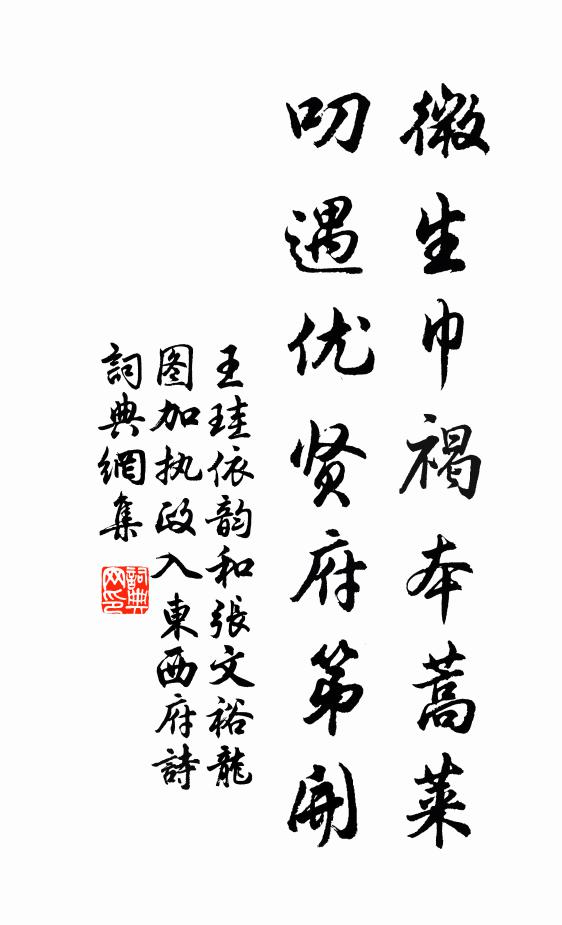 微生巾褐本蒿莱
叨遇优贤府第開
王珪依韵和張文裕龍
图加执政入東西府詩
詞典網集
詞典網印